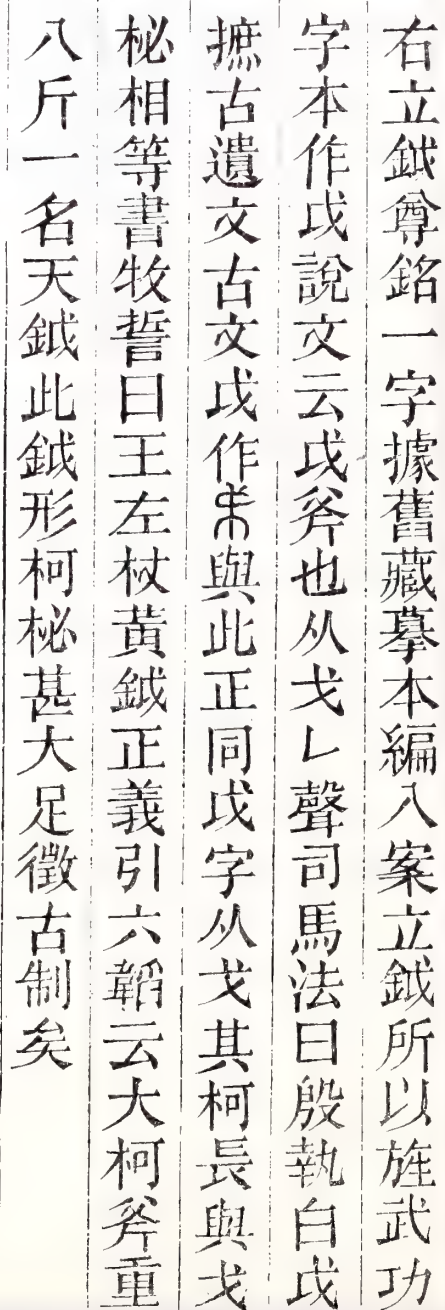 右立鉞尊銘一字據舊藏摹本編入案立鉞所以旌武功
字本作戉說文云戉斧也从戈𠄌聲司馬法曰殷執白戉
摭古遺文古文戉作與此正同戉字从戈其柯長與戈
柲相等書牧誓曰王左杖黃鉞正義引六韜云大柯斧重
八斤一名天鉞此鉞形柯柲甚大足徵古制矣